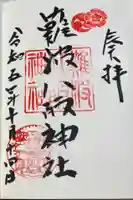 奉拝
難波八阪神社
令和五年十月十四日